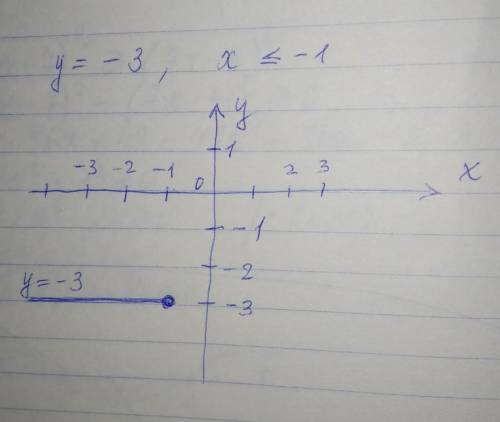 y = -3, x ≤ -1
y
1
-3 -2 -1 0 2 3 x
-1
-2
y=-3
-3